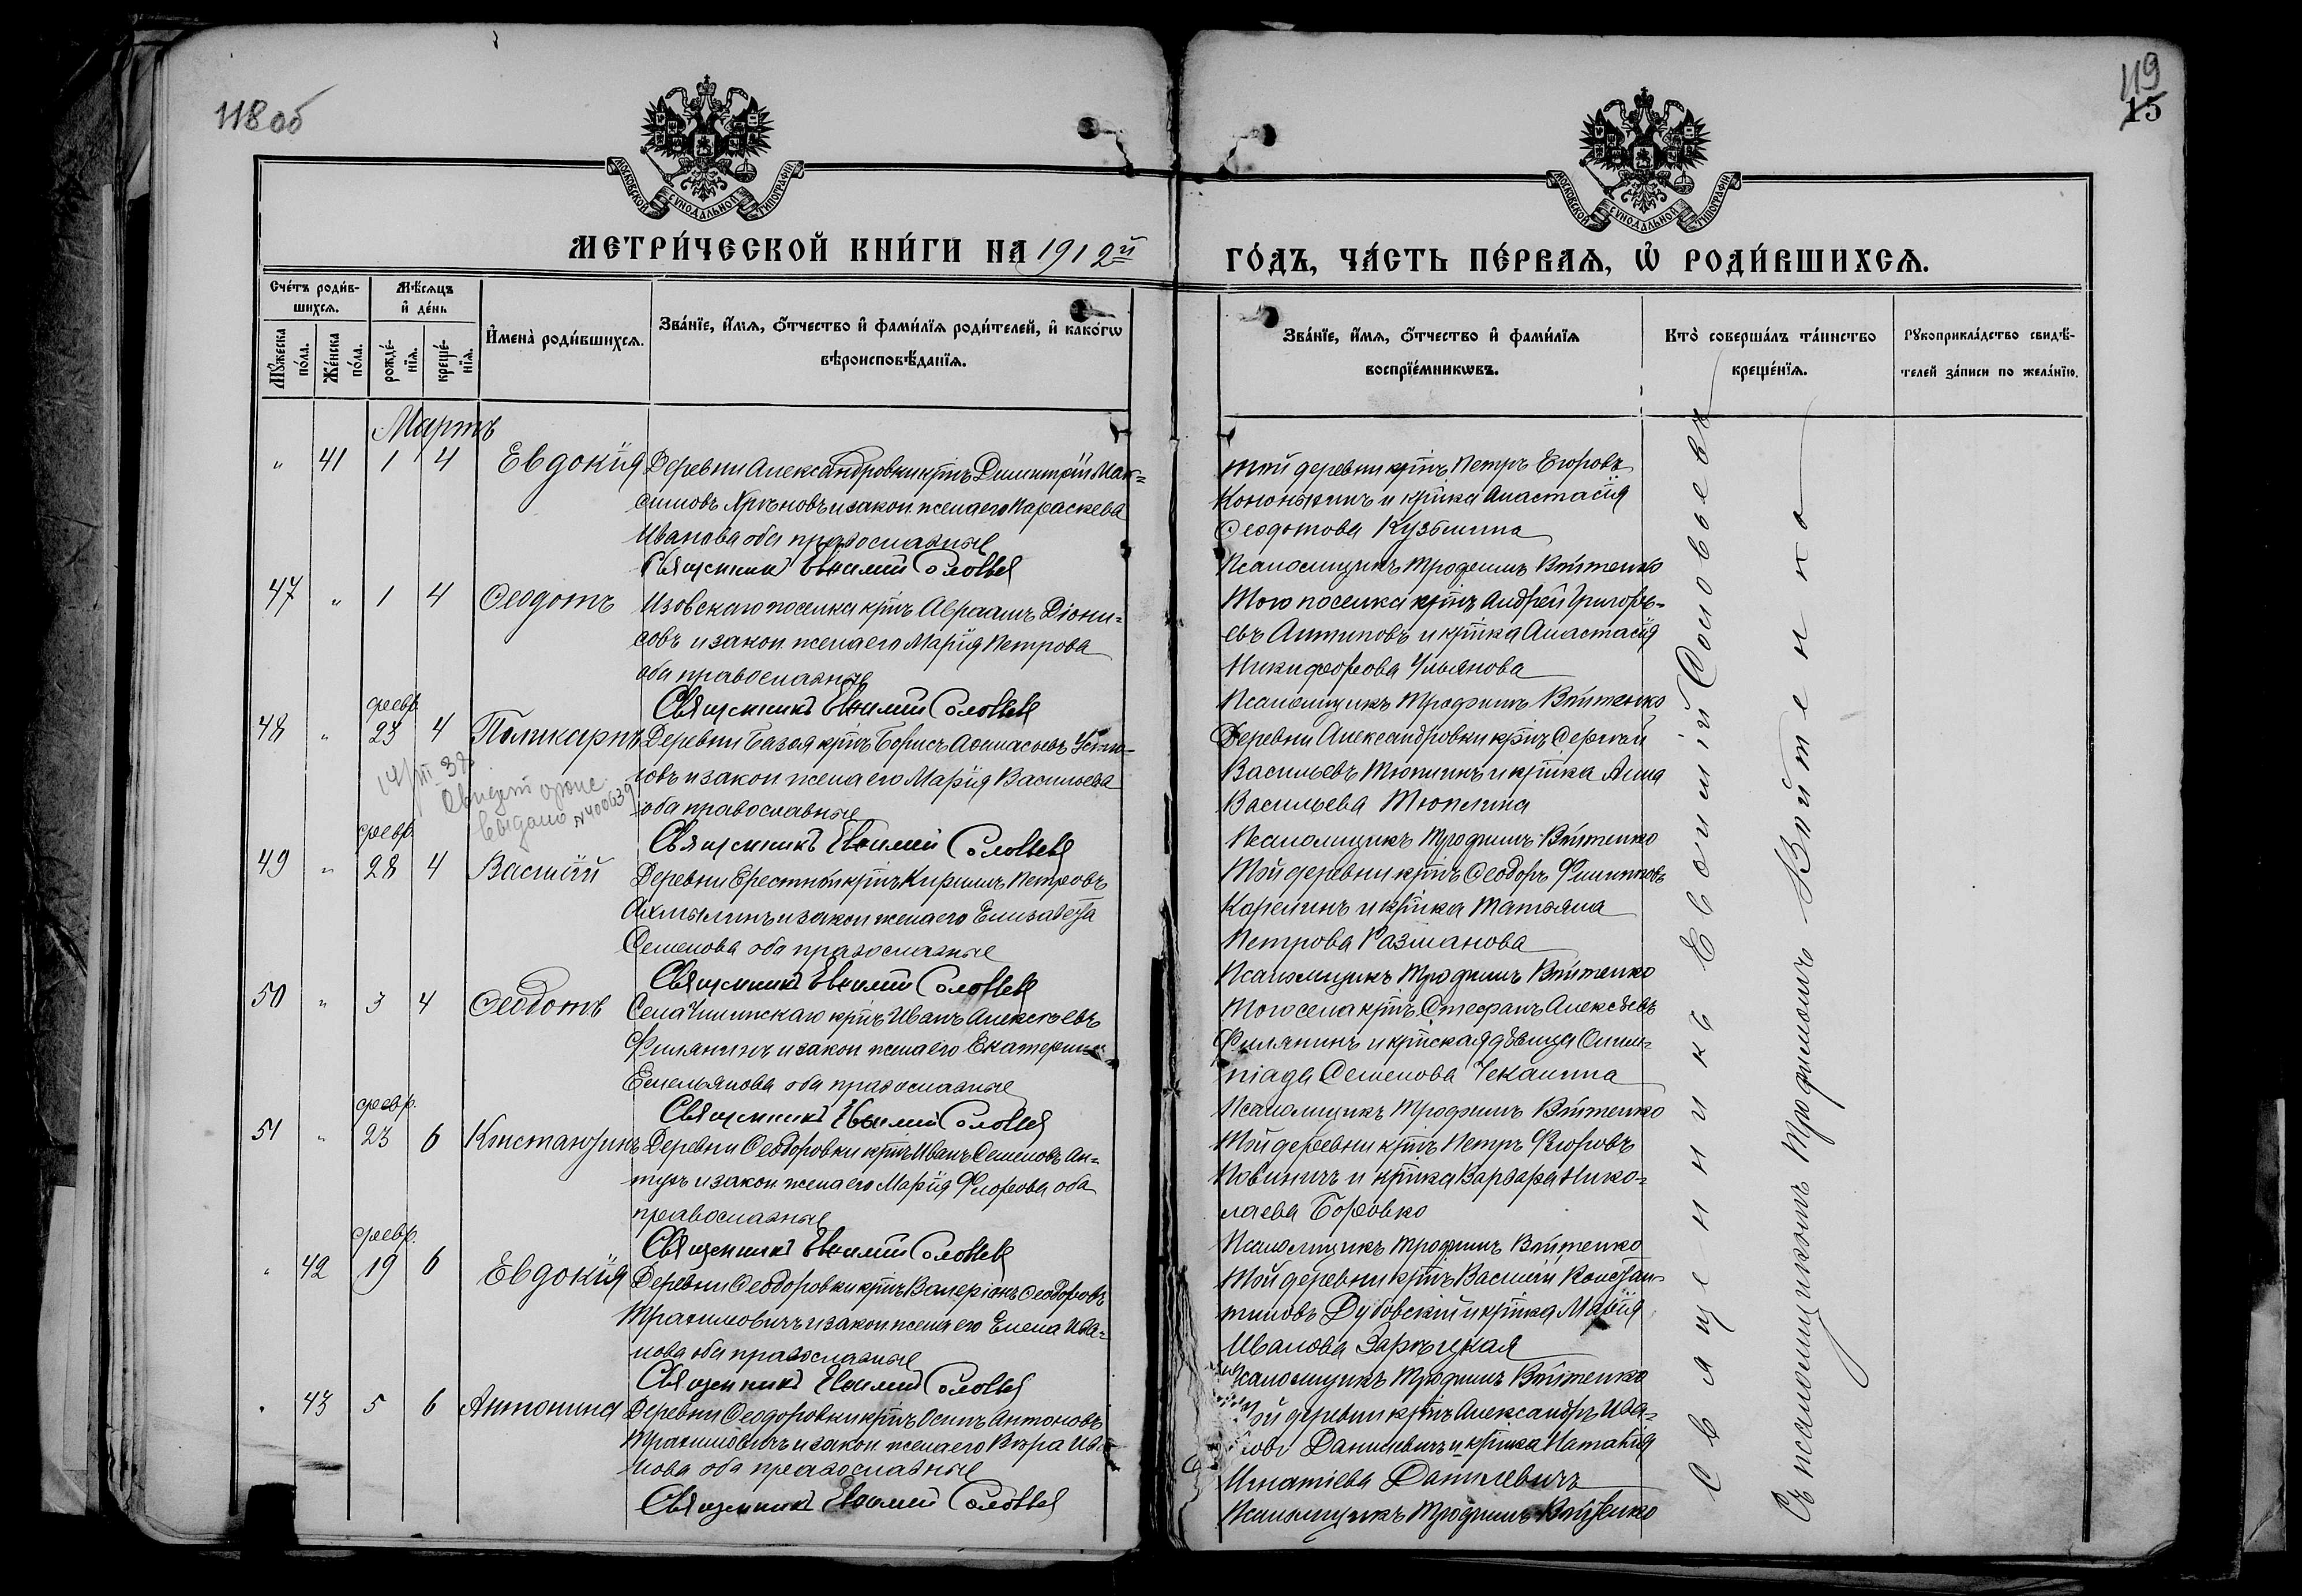 118 об
119
15
МОСКОВСКОЙ СѴНОДАЛЬНОЙ ТИПОГРАФІИ
МОСКОВСКОЙ СѴНОДАЛЬНОЙ ТИПОГРАФІИ
МЕТРИ́ЧЕСКОЙ КНИ́ГИ НА 1912й
ГО́ДЪ, ЧА́СТЬ ПЕ́РВАѦ, Ѡ҆ РОДИ́ВШИХСѦ.
Сче́тъ роди́в-
шихсѧ.
Мѣ́сѧцъ
и҆ де́нь
Мꙋ́жеска по́ла.
Же́нска по́ла.
рожде́-нїѧ.
креще́-нїѧ.
И҆мена̀ роди́вшихсѧ.
Зва́нїе, и҆́мѧ, ѻ҆́тчество и҆ фами́лїѧ роди́телей, и҆ како́гѡ
вѣроисповѣ́данїѧ.
Зва́нїе, и҆́мѧ, ѻ҆́тчество и҆ фами́лїѧ
воспрїе́мникѡвъ.
Кто̀ соверша́лъ та́инство
креще́нїѧ.
Рꙋкоприкла́дство свидѣ́-
телей за́писи по жела́нїю.
Мартъ
" 41 1 4 Евдокія Деревни Александровки кр̃нъ Димитрій Мак=
симовъ Хрѣновъ и закон. жена его Параскева
Иванова оба православные
Священникъ Евѳимій Соловьев
той деревни кр̃нъ Петръ Егоровъ
и кр̃нка Анастасія
Ѳеодотова Кузьмина
Псаломщикъ Трофимъ Войтенко
47 " 1 4 Ѳеодотъ Изовскаго поселка кр̃нъ Авраамъ Діони=
совъ и закон. жена его Марія Петрова
оба православные
Священникъ Евѳимій Соловьев
Того поселка кр̃нъ Андрей Григорь-
евъ Антиповъ и кр̃нка Анастасія
Никифорова Ульянова
Псаломщикъ Трофимъ Войтенко
февр.
48 " 23 4 Поликарпъ Деревни Базоя кр̃нъ Борисъ Аѳанасьевъ
и закон. жена его Марія Васильева
оба православные
Священникъ Евѳимій Соловьев
Деревни Александровки кр̃нъ Сергѣй
Васильевъ Тюпкинъ и кр̃нка Анна
Васильева Тюпкина
Псаломщикъ Трофимъ Войтенко
выдано № 400639
февр.
49 " 28 4 Василій Деревни Ерестной кр̃нъ Кириллъ Петровъ
Ахмылинъ и закон. жена его Елизавета
Семенова оба православные
Священникъ Евѳимій Соловьев
Той деревни кр̃нъ Ѳеодоръ Филипповъ
Карелинъ и кр̃нка Татьяна
Петрова Разманова
Псаломщикъ Трофимъ Войтенко
50 " 3 4 Ѳеодотъ Села Чилинскаго кр̃нъ Иванъ Алексѣевъ
Филянинъ и закон. жена его Екатерина
Емельянова оба православные
Священникъ Евѳимій Соловьев
Того села кр̃нъ Стефанъ Алексѣевъ
Филянинъ и кр̃нская дѣвица Олим=
піада Семенова Чекалина
Псаломщикъ Трофимъ Войтенко
февр.
51 " 23 6 Константинъ Деревни Ѳеодоровки кр̃нъ Иванъ Семеновъ Ан=
и закон. жена его Марія Флорова оба
православные
Священникъ Евѳимій Соловьев
Той деревни кр̃нъ Петръ Флоровъ
и кр̃нка Варвара Нико=
лаева Боровко
Псаломщикъ Трофимъ Войтенко
февр.
" 42 19 6 Евдокія Деревни Ѳеодоровки кр̃нъ Валеріанъ Ѳеодоровъ
Трахимовичъ и закон. жена его Елена Ива=
нова оба православные
Священникъ Евѳимій Соловьев
Той деревни кр̃нъ Василій Констан-
тиновъ Дубовскій и кр̃нка Марія
Иванова Зарѣцкая
Псаломщикъ Трофимъ Войтенко
" 43 5 6 Антонина Деревни Ѳеодоровки кр̃нъ Осипъ Антоновъ
Трахимовичъ и закон. жена его Вѣра Ива=
нова оба православные
Священникъ Евѳимій Соловьев
Той деревни кр̃нъ Александръ Ива=
новъ Данилевичъ и кр̃нка Наталія
Игнатіева Данилевичъ
Псаломщикъ Трофимъ Войтенко
Священникъ Евѳимій Соловьевъ
Съ псаломщикомъ Трофимомъ Войтенко